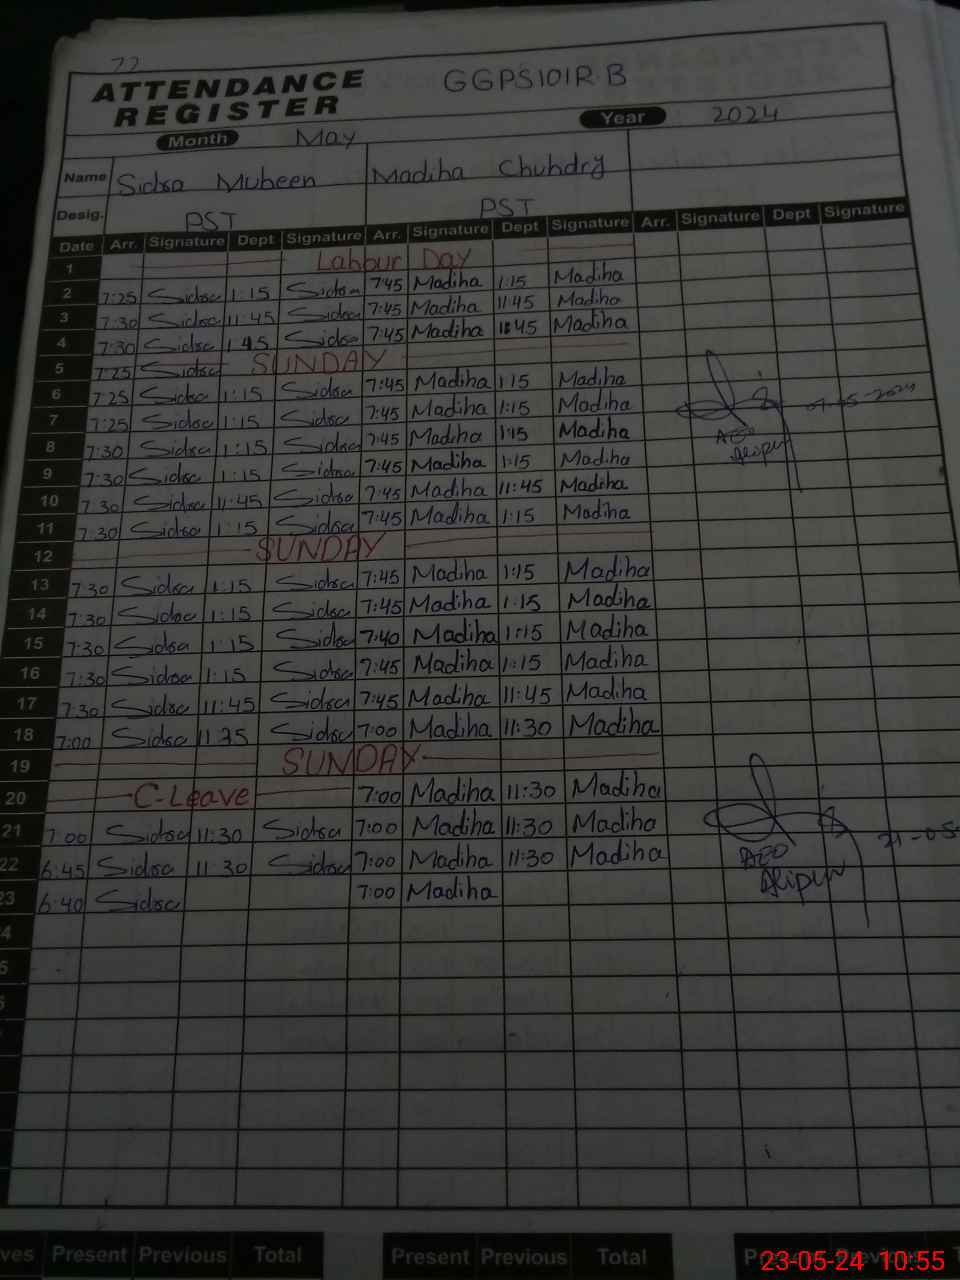 77
ATTENDANCE REGISTER GGPS101R B
Month May Year 2024
Name Sidsa Mubeen Madiha Chuhdry
Desig. PST PST
Date Arr. Signature Dept Signature Arr. Signature Dept Signature Arr. Signature Dept Signature
1 Labour Day
2 7:25 Sidsa 1:15 Sidsa 7:45 Madiha 1:15 Madiha
3 7:30 Sidsa 11:45 Sidsa 7:45 Madiha 11:45 Madiha
4 7:30 Sidsa 1:45 Sidsa 7:45 Madiha 11:45 Madiha
5 7:25 Sidsa SUNDAY
6 7:25 Sidsa 1:15 Sidsa 7:45 Madiha 1:15 Madiha
7 7:25 Sidsa 1:15 Sidsa 7:45 Madiha 1:15 Madiha
8 7:30 Sidsa 1:15 Sidsa 7:45 Madiha 1:15 Madiha AEO
9 7:30 Sidsa 1:15 Sidsa 7:45 Madiha 1:15 Madiha Alipur
10 7:30 Sidsa 11:45 Sidsa 7:45 Madiha 11:45 Madiha
11 7:30 Sidsa 1:15 Sidsa 7:45 Madiha 1:15 Madiha
12 SUNDAY
13 7:30 Sidsa 1:15 Sidsa 7:45 Madiha 1:15 Madiha
14 7:30 Sidsa 1:15 Sidsa 7:45 Madiha 1:15 Madiha
15 7:30 Sidsa 1:15 Sidsa 7:40 Madiha 1:15 Madiha
16 7:30 Sidsa 1:15 Sidsa 7:45 Madiha 1:15 Madiha
17 7:30 Sidsa 11:45 Sidsa 7:45 Madiha 11:45 Madiha
18 7:00 Sidsa 11 35 Sidsa 7:00 Madiha 11:30 Madiha
19 SUNDAY
20 C-Leave 7:00 Madiha 11:30 Madiha
21 7:00 Sidsa 11:30 Sidsa 7:00 Madiha 11:30 Madiha 21-05-
22 6:45 Sidsa 11 30 Sidsa 7:00 Madiha 11:30 Madiha AEO
23 6:40 Sidsa 7:00 Madiha Alipur
4
5
ves Present Previous Total Present Previous Total Present Previous
23-05-24 10:55